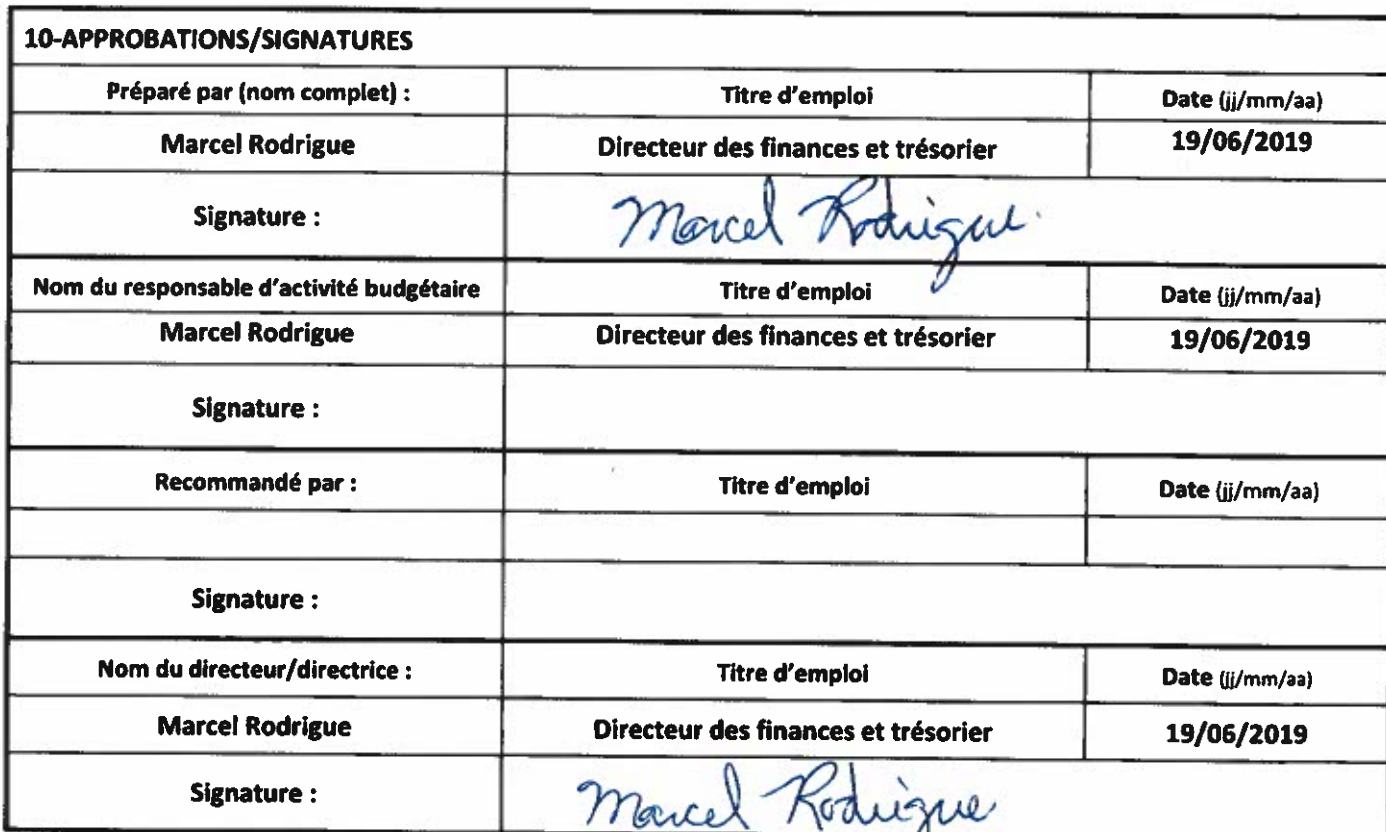 10-APPROBATIONS/SIGNATURES
Préparé par (nom complet) : Titre d'emploi Date (jj/mm/aa)
Marcel Rodrigue Directeur des finances et trésorier 19/06/2019
Signature : Marcel Rodrigue
Nom du responsable d'activité budgétaire Titre d'emploi Date (jj/mm/aa)
Marcel Rodrigue Directeur des finances et trésorier 19/06/2019
Signature :
Recommandé par : Titre d'emploi Date (jj/mm/aa)
Signature :
Nom du directeur/directrice : Titre d'emploi Date (jj/mm/aa)
Marcel Rodrigue Directeur des finances et trésorier 19/06/2019
Signature : Marcel Rodrigue